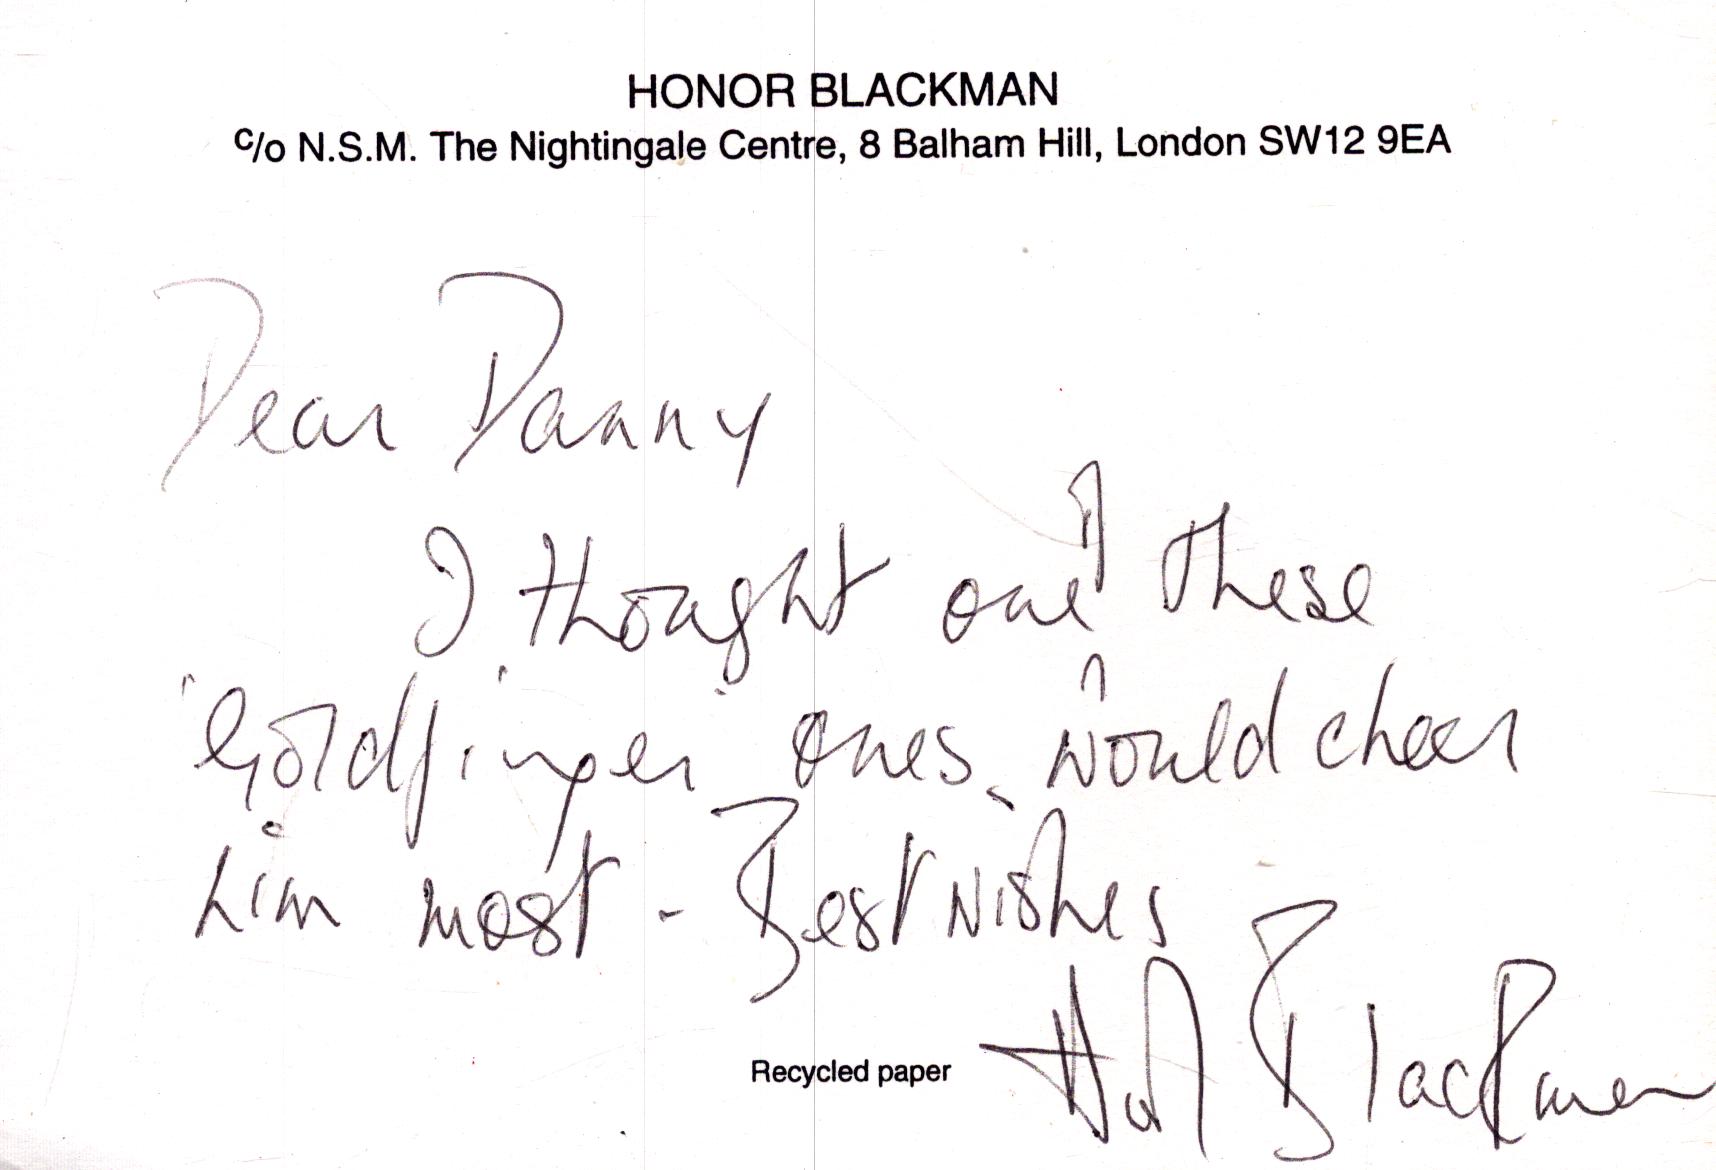 HONOR BLACKMAN
c/o N.S.M. The Nightingale Centre, 8 Balham Hill, London SW12 9EA
Dear Danny
I thought one of these
'Goldfinger' ones, would cheer
him most - Best wishes
Recycled paper
Honor Blackman